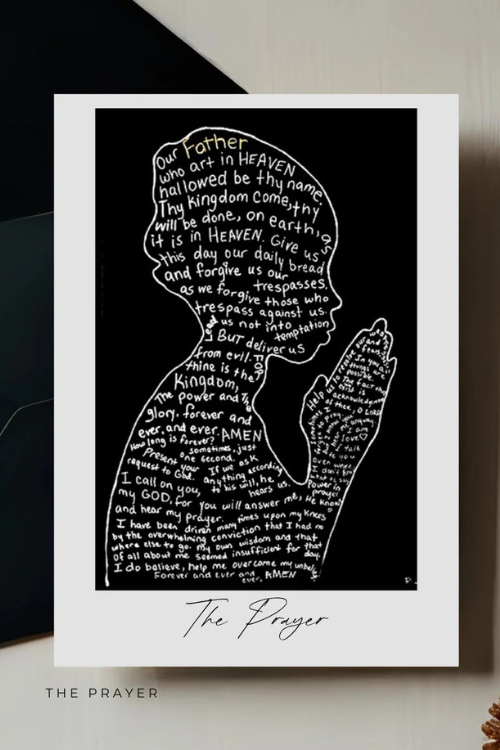 Our Father
who art in HEAVEN
hallowed be thy name.
Thy Kingdom come, thy
will be done, on earth, as
it is in HEAVEN. Give us
this day our daily bread
and forgive us our trespasses,
as we forgive those who
trespass against us.
Lead us not into
temptation
BUT deliver us
from evil. FOR
thine is the
Kingdom,
The power and The
glory. forever and
ever, and ever. AMEN
How long is forever?
sometimes, just
one second.
Present your
request to God.
If we ask
anything according
to his will, he
hears us.
I call on you,
my GOD, for you will answer me,
and hear my prayer.
I have been driven many times upon my knees
by the overwhelming conviction that I had no
where else to go. My own wisdom and that
of all about me seemed insufficient for that day.
I do believe, help me overcome my unbelief
Forever and ever and
ever, AMEN
Help us to
things are
possible
The fact
acknowledge
thee, O LORD
I am
I talk
Power
prayer
The Prayer
THE PRAYER